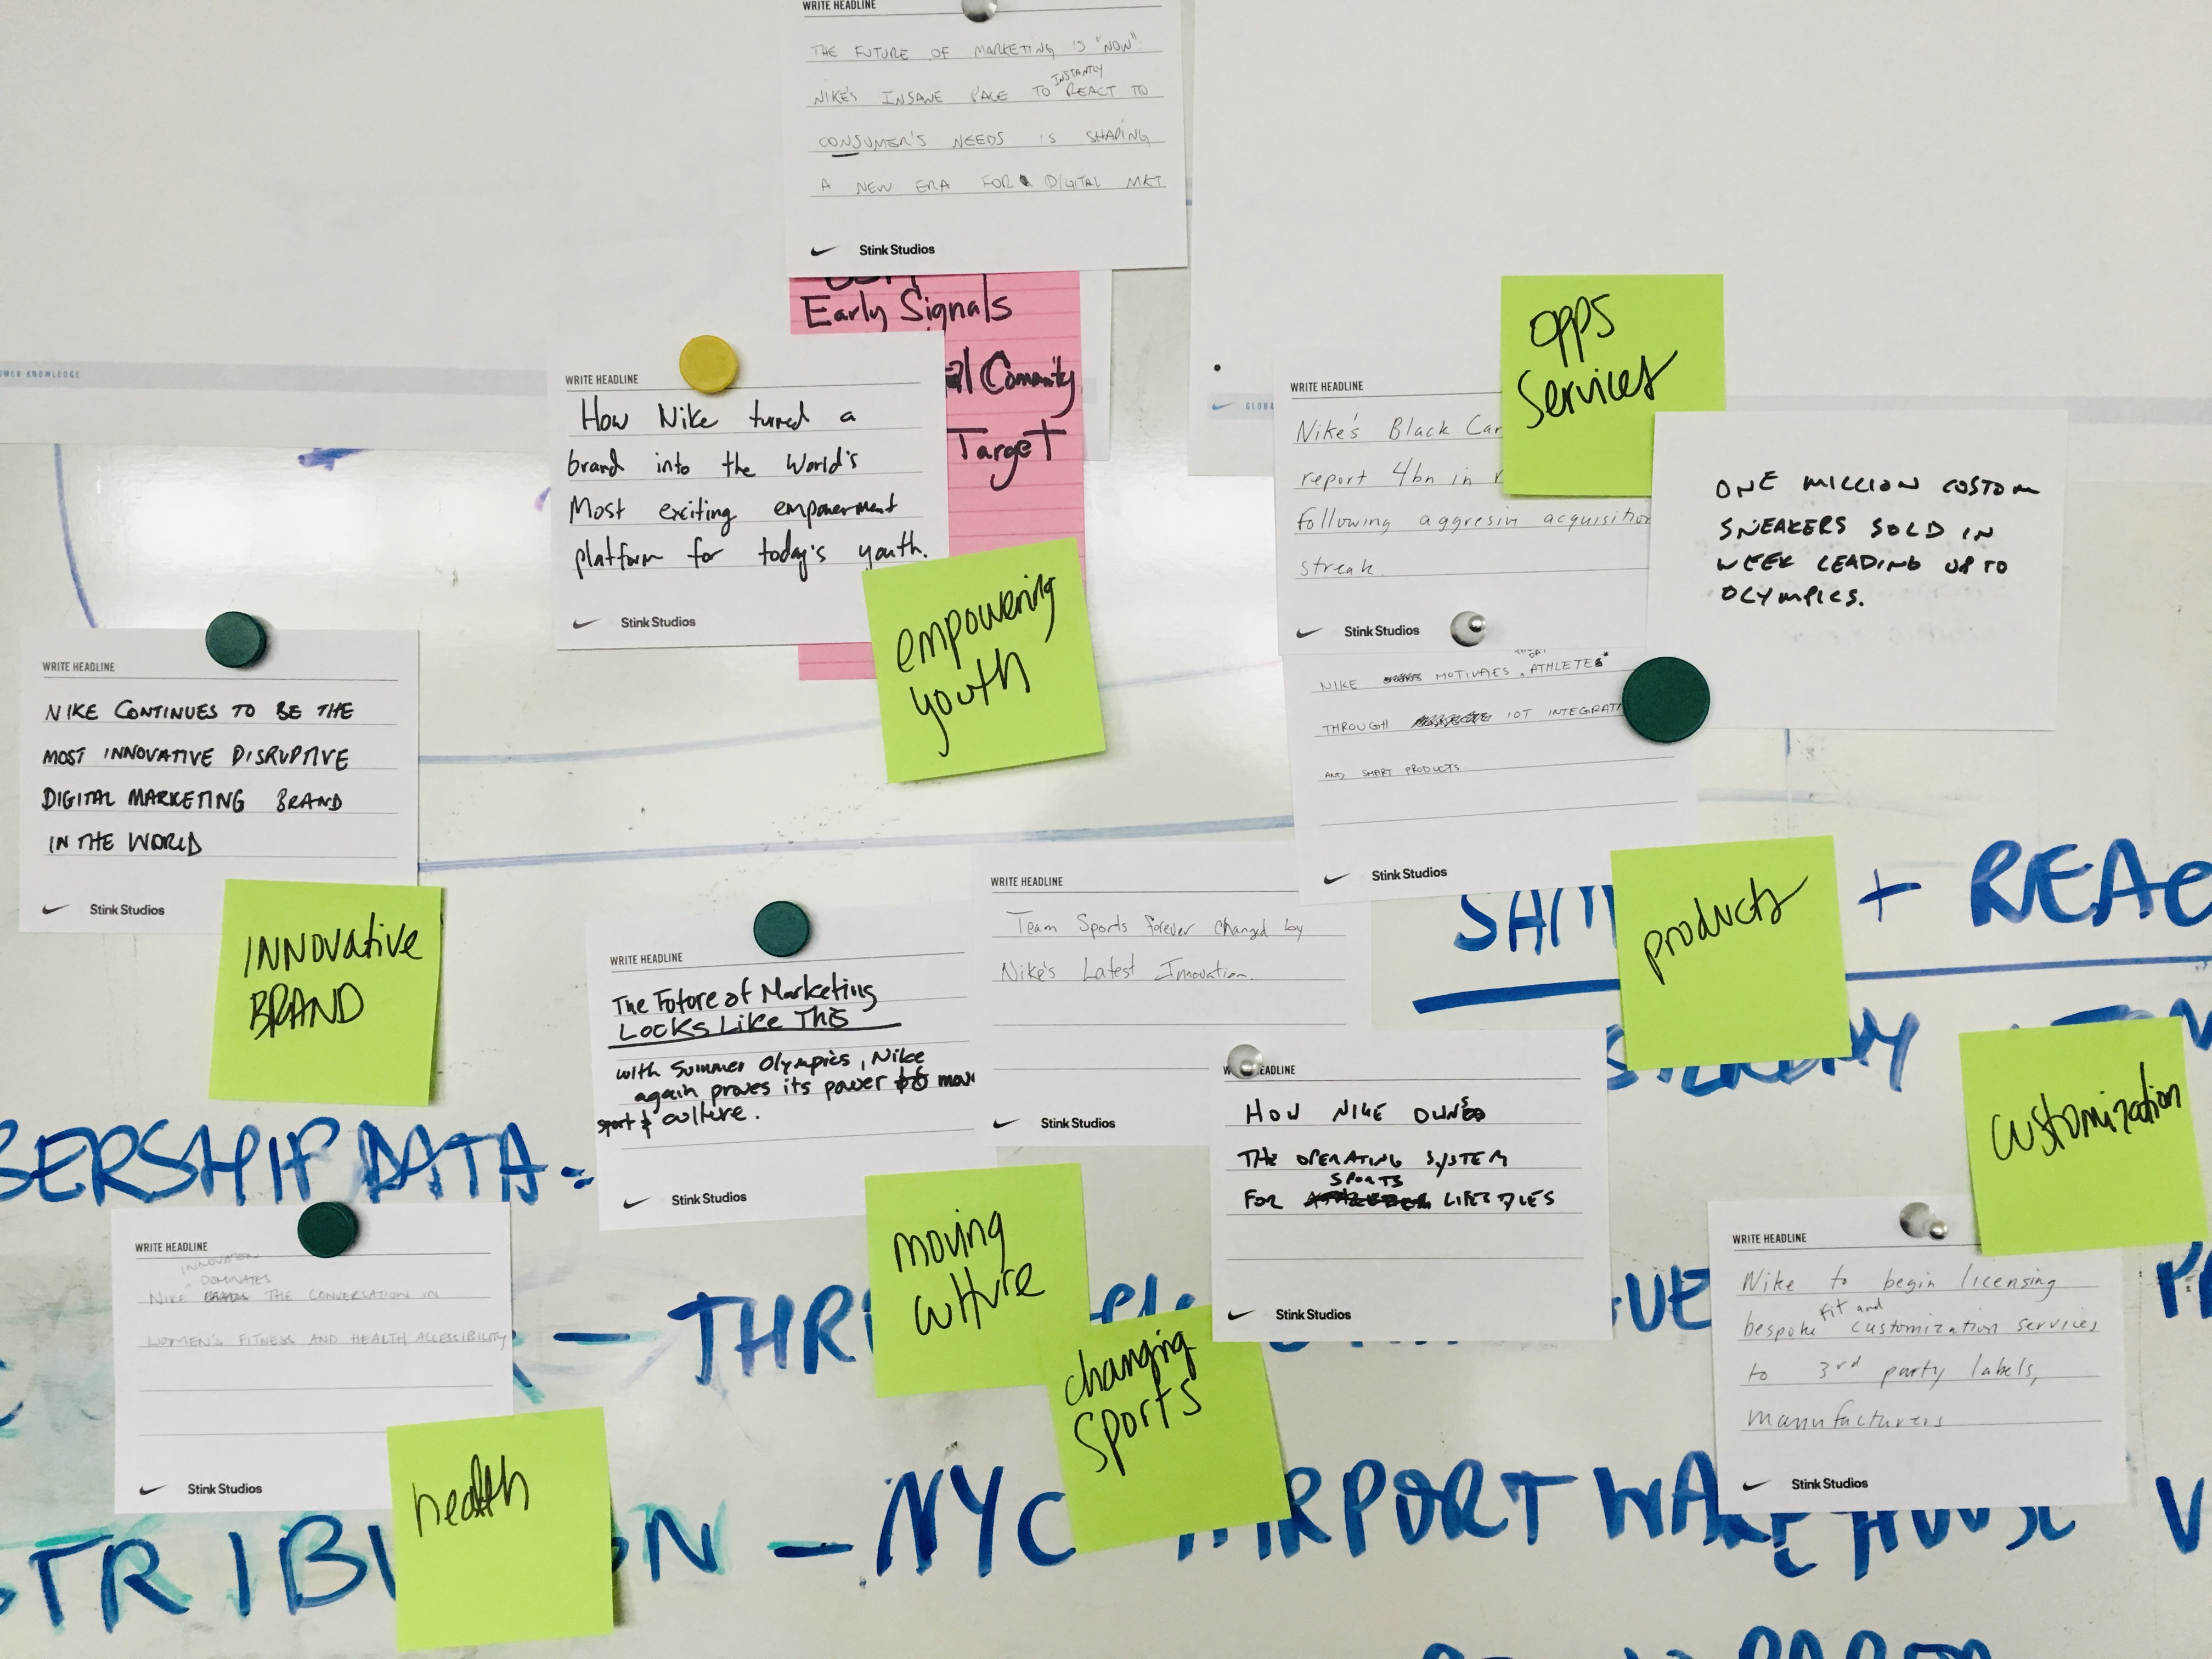 WRITE HEADLINE
THE FUTURE OF MARKETING IS "NOW"
INSTANTLY
NIKE'S INSANE PACE TO REACT TO
CONSUMER'S NEEDS IS SHAPING
A NEW ERA FOR DIGITAL MKT
Stink Studios
Early Signals
Comunity
Target
WRITE HEADLINE
How Nike turned a
brand into the World's
Most exciting empowerment
platform for today's youth.
Stink Studios
empowering
youth
opps
Services
WRITE HEADLINE
Nike's Black Car
report 4bn in r
following aggresiv acquisition
streak
Stink Studios
ONE MILLION CUSTOM
SNEAKERS SOLD IN
WEEK LEADING UP TO
OLYMPICS.
NIKE MOTIVATES ATHLETES
THROUGH IOT INTEGRATI
AND SMART PRODUCTS
Stink Studios
products
WRITE HEADLINE
NIKE CONTINUES TO BE THE
MOST INNOVATIVE DISRUPTIVE
DIGITAL MARKETING BRAND
IN THE WORLD
Stink Studios
INNOVATIVE
BRAND
WRITE HEADLINE
The Future of Marketing
Looks Like This
with Summer Olympics, Nike
again proves its power to move
sport & culture.
Stink Studios
WRITE HEADLINE
Team Sports forever changed by
Nike's Latest Innovation.
Stink Studios
moving
culture
changing
Sports
EADLINE
HOW NIKE OWNS
THE OPERATING SYSTEM
SPORTS
FOR LIFESTYLES
Stink Studios
customization
WRITE HEADLINE
Nike to begin licensing
fit and
bespoke customization services
to 3rd party labels,
manufacturers
Stink Studios
WRITE HEADLINE
INNOVATION
DOMINATES
NIKE THE CONVERSATION IN
WOMEN'S FITNESS AND HEALTH ACCESSIBILITY
Stink Studios
health
+ REAC
BERSHIP DATA =
THR
TRIBU ON - NYC AIRPORT WAREHOUSE V